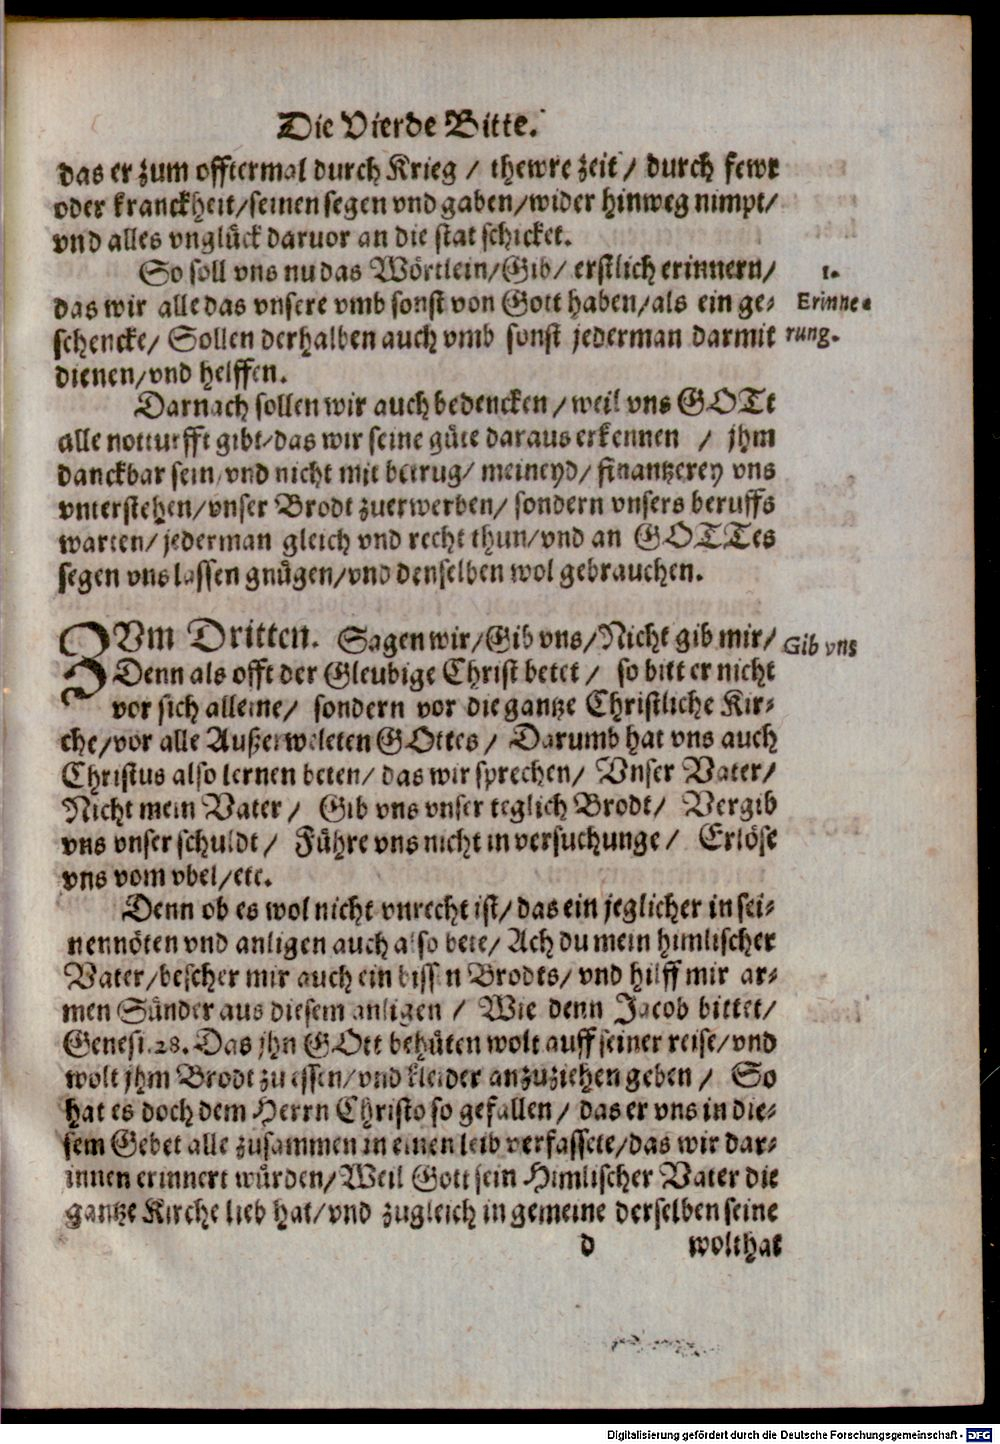 Die Vierde Bitte.
das er zum offtermal durch Krieg / thewre zeit / durch fewr
oder kranckheit/seinen segen vnd gaben/wider hinweg nimpt/
vnd alles vnglück daruor an die stat schicket.
So soll vns nu das Wörtlein/Gib/ erstlich erinnern/
1.
das wir alle das vnsere vmb sonst von Gott haben/als ein ge-
Erinne-
schencke/ Sollen derhalben auch vmb sonst jederman darmit
rung.
dienen/vnd helffen.
Darnach sollen wir auch bedencken/weil vns GOTt
alle notturfft gibt/das wir seine güte daraus erkennen / jhm
danckbar sein/vnd nicht mit betrug/ meineyd/ finantzerey vns
vnterstehen/vnser Brodt zuerwerben/ sondern vnsers beruffs
warten/jederman gleich vnd recht thun/vnd an GOTTes
segen vns lassen gnügen/vnd denselben wol gebrauchen.
ZVm Dritten. Sagen wir/Gib vns/Nicht gib mir/
Gib vns
Denn als offt der Gleubige Christ betet / so bitt er nicht
vor sich alleine/ sondern vor die gantze Christliche Kir-
che/vor alle Außerweleten GOttes/ Darumb hat vns auch
Christus also lernen beten/ das wir sprechen/ Vnser Vater/
Nicht mein Vater/ Gib vns vnser teglich Brodt/ Vergib
vns vnser schuldt/ Führe vns nicht in versuchunge/ Erlöse
vns vom vbel/etc.
Denn ob es wol nicht vnrecht ist/das ein jeglicher in sei-
nen nöten vnd anligen auch also bete/ Ach du mein himlischer
Vater/bescher mir auch ein bissen Brodts/ vnd hilff mir ar-
men Sünder aus diesem anligen / Wie denn Jacob bittet/
Genesi.28. Das jhn GOtt behüten wolt auff seiner reise/vnd
wolt jhm Brodt zu essen/vnd kleider anzuziehen geben / So
hat es doch dem Herrn Christo so gefallen/ das er vns in die-
sem Gebet alle zusammen in einen leib verfassete/das wir dar-
innen erinnert würden/Weil Gott sein Himlischer Vater die
gantze Kirche lieb hat/vnd zugleich in gemeine derselben seine
d wolthat
Digitalisierung gefördert durch die Deutsche Forschungsgemeinschaft - DFG